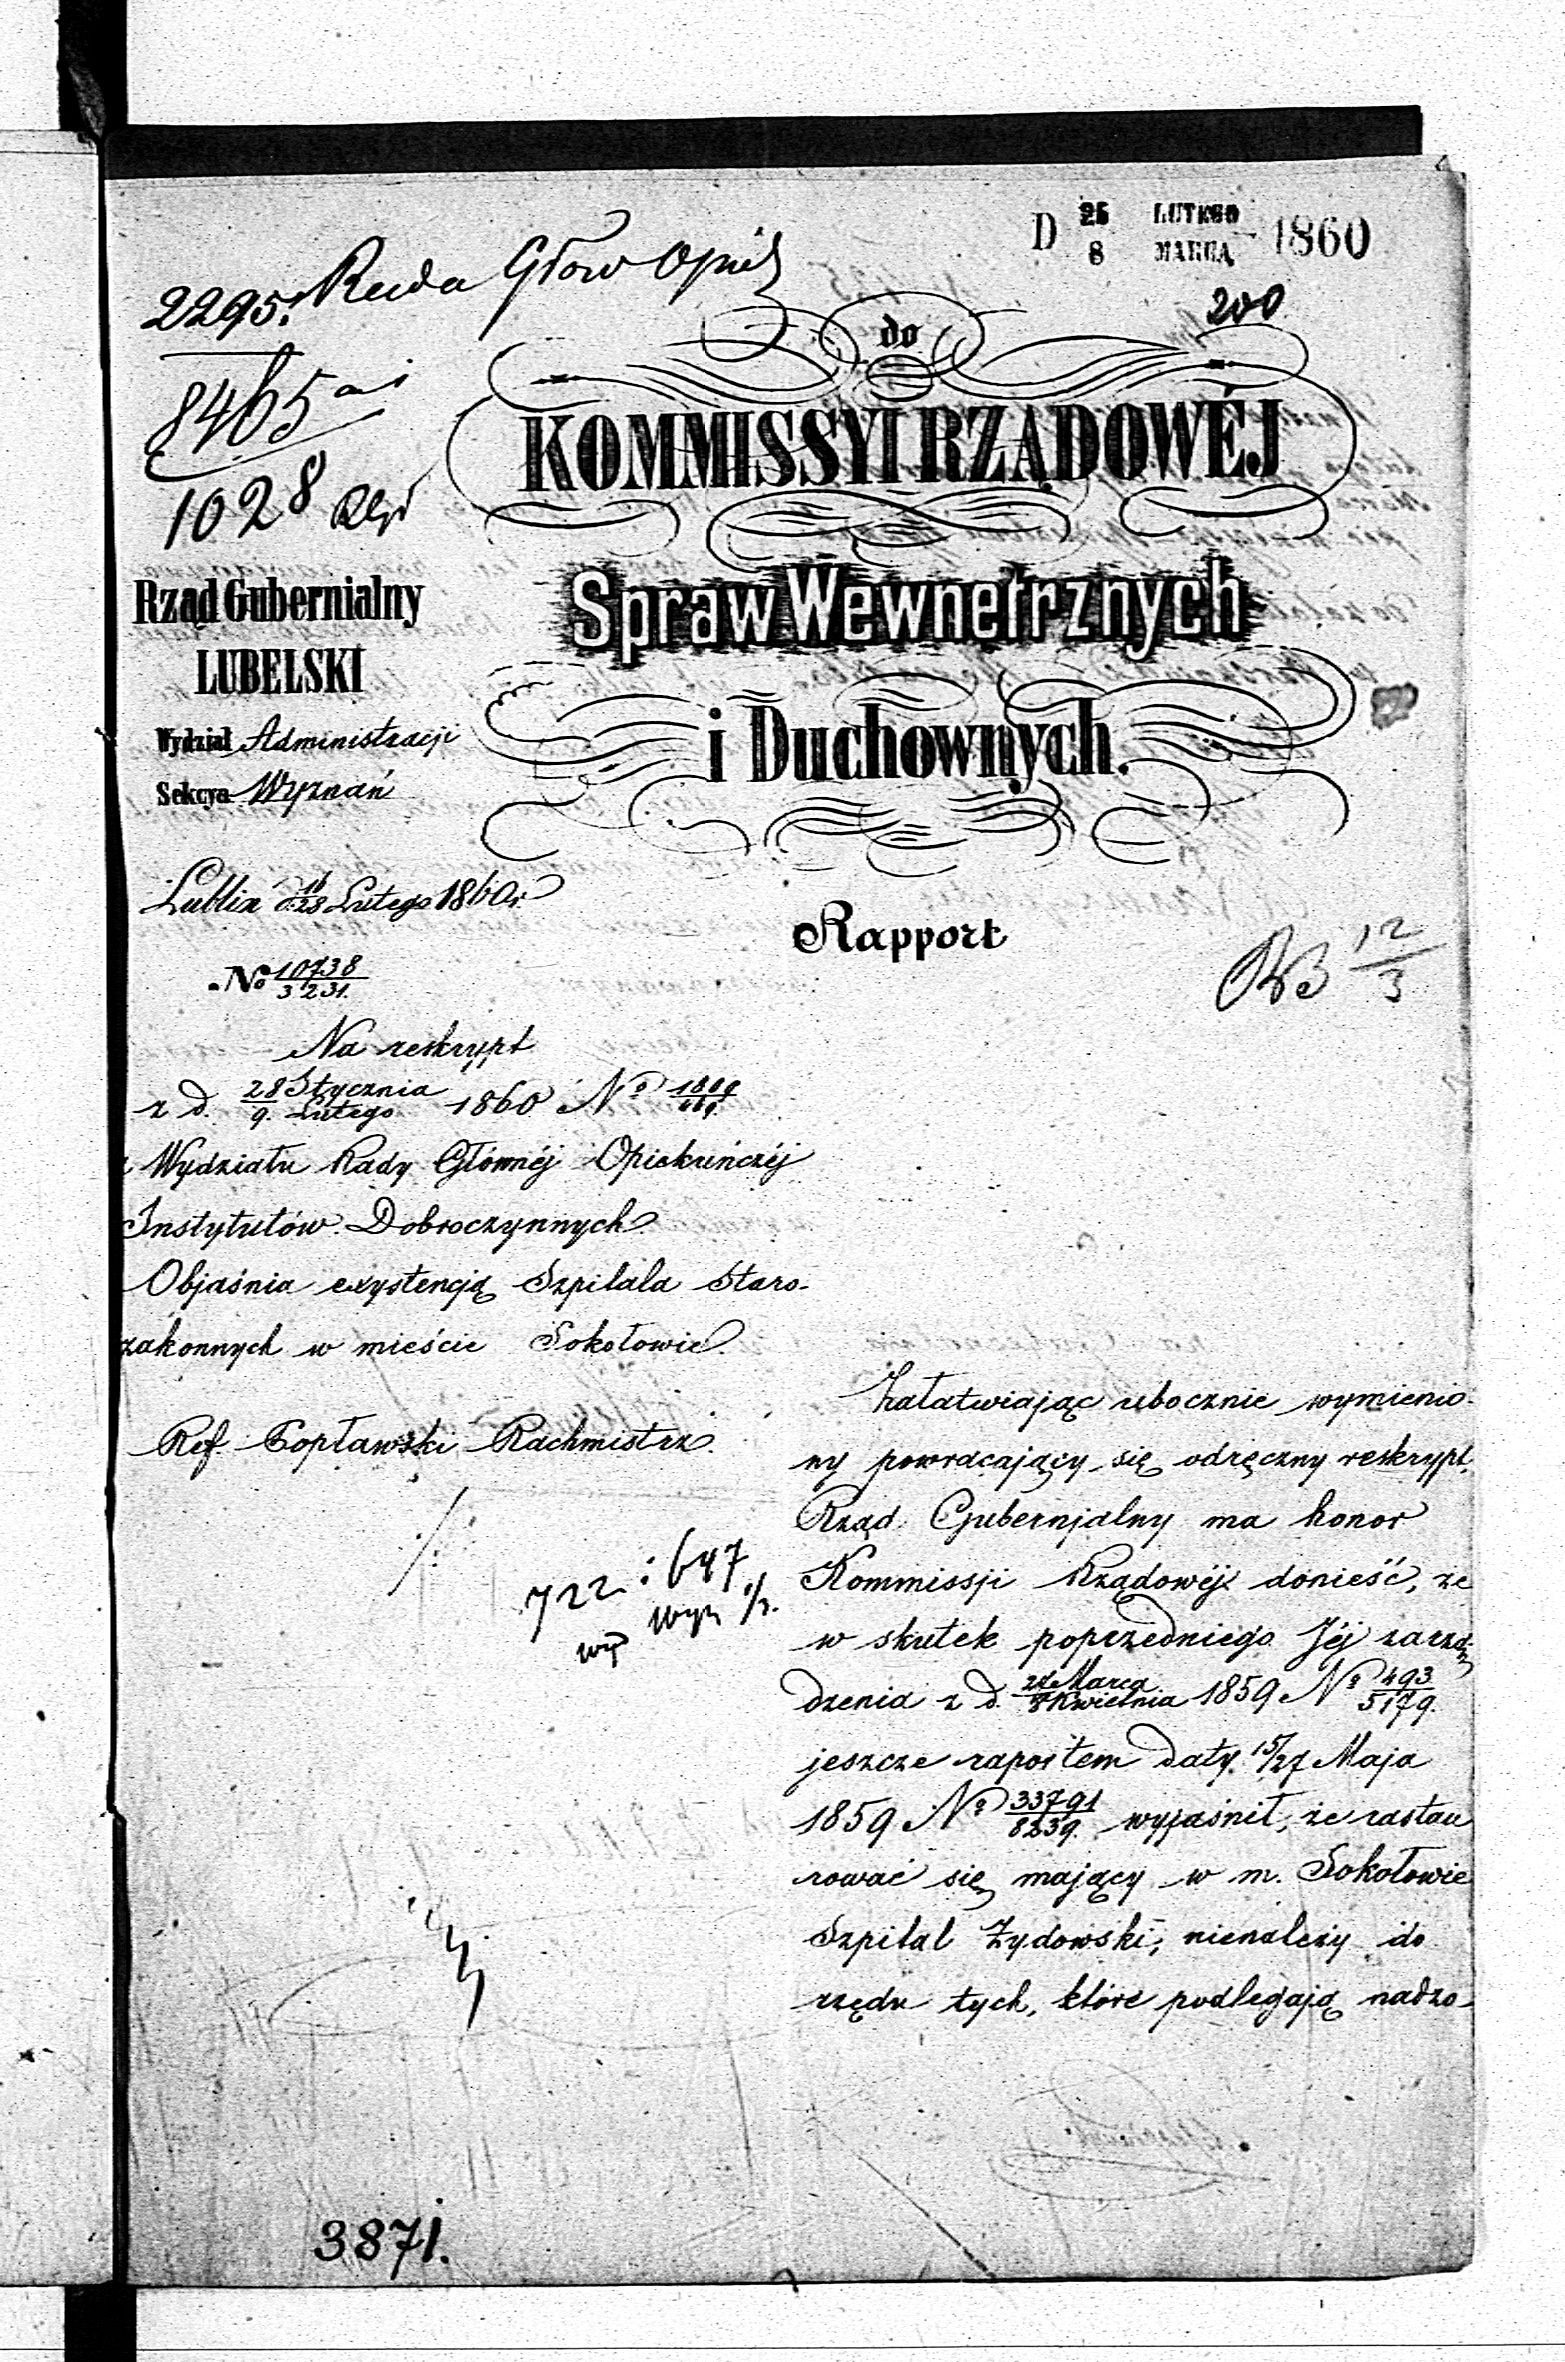 D 25 LUTEGO 1860
8 MARCA
2295. Rada Głow Opiek
200
8465
1028
do
KOMMISSYI RZĄDOWÉJ
Spraw Wewnętrznych
i Duchownych.
Rząd Gubernialny
LUBELSKI
Wydział Administracji
Sekcya Wyznań
Lublin d. 16/28 Lutego 1860 r
Rapport
12/3
No 10738/3231.
Na reskrypt
z d. 28 Stycznia/9. Lutego 1860 No
z Wydziału Rady Głównéj Opiekuńczéj
Instytutów Dobroczynnych
Objaśnia exystencją Szpitala Staro-
zakonnych w mieście Sokołowie.
Ref. Popławski Rachmistrz.
722 : 647
Załatwiając ubocznie wymienio-
ny powracający się odręczny reskrypt,
Rząd Gubernjalny ma honor
Kommissji Rządowéj donieść, że
w skutek poprzedniego Jéj zarzą-
dzenia z d. 27 Marca/8 Kwietnia 1859 No 493/5179.
jeszcze raportem daty 15/27 Maja
1859 No 33791/8239. wyjaśnił, że rastau
rować się mający w m. Sokołowie
Szpital Żydowski, nienależy do
rzędu tych, które podlegają nadzo-
3871.